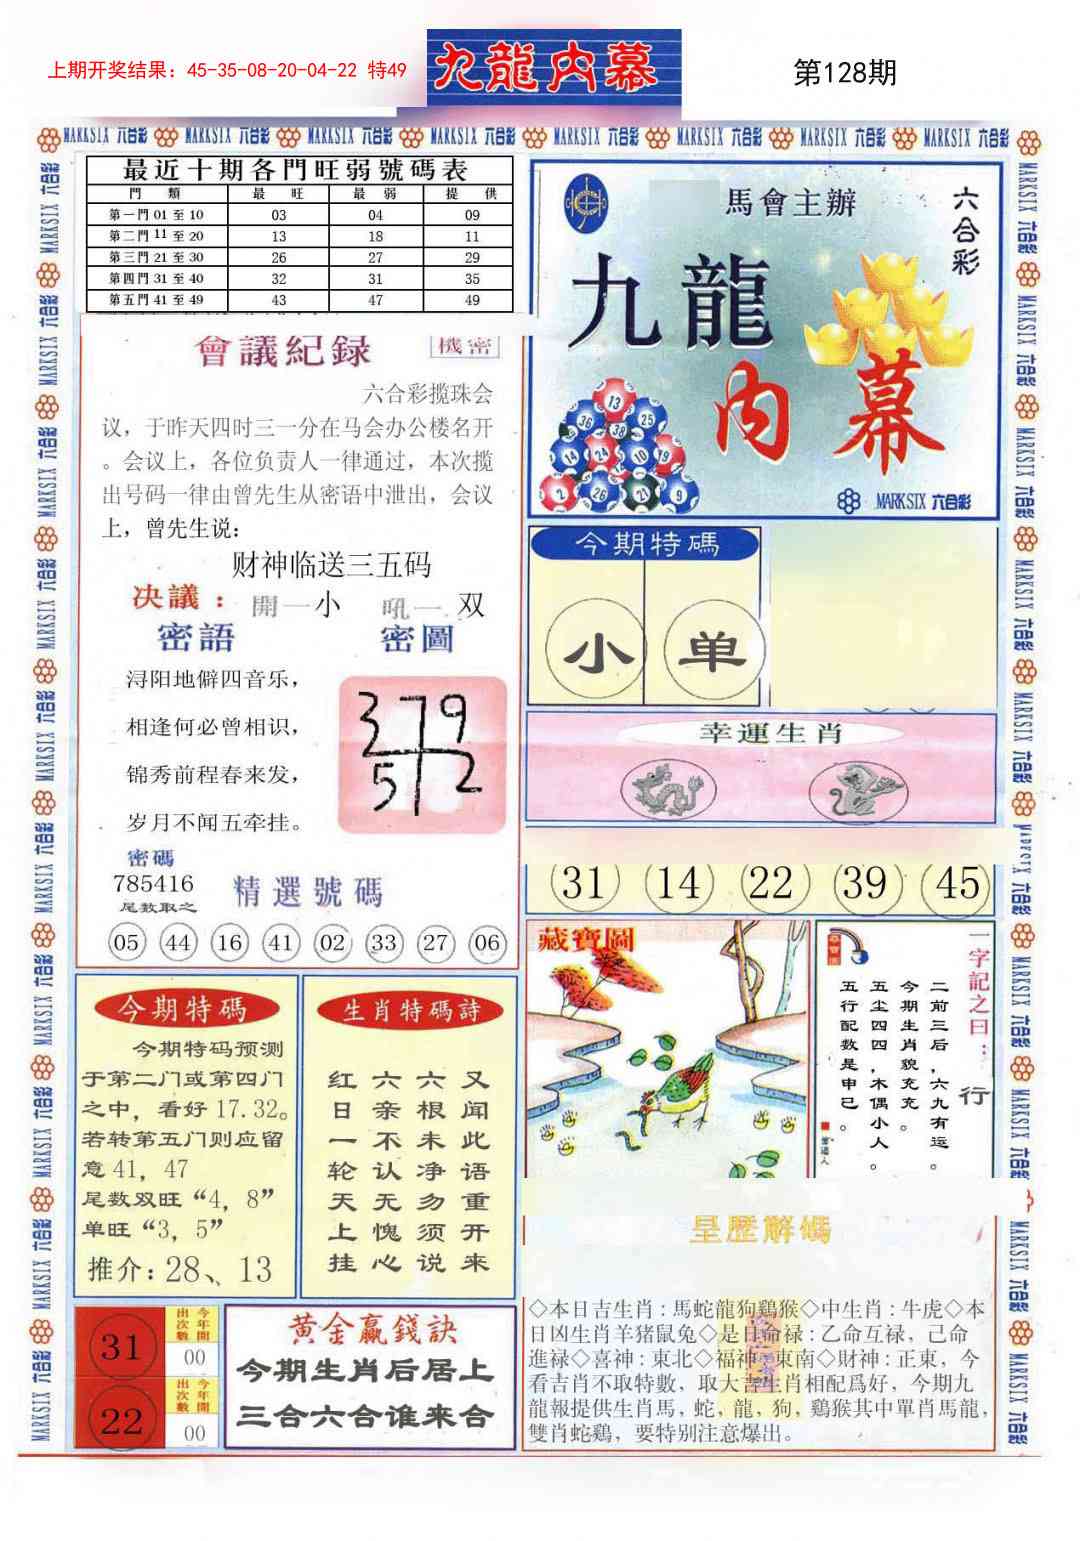 上期开奖结果：45-35-08-20-04-22 特49
九龍内幕
第128期
MARKSIX 六合彩 MARKSIX 六合彩 MARKSIX 六合彩 MARKSIX 六合彩 MARKSIX 六合彩 MARKSIX 六合彩 MARKSIX 六合彩 MARKSIX 六合彩
最近十期各門旺弱號碼表
門類 最旺 最弱 提供
第一門 01 至 10 03 04 09
第二門 11 至 20 13 18 11
第三門 21 至 30 26 27 29
第四門 31 至 40 32 31 35
第五門 41 至 49 43 47 49
馬會主辦
六合彩
九龍
内幕
13
36 38 25
14 24 10 19
2 26 21 9
MARKSIX 六合彩
會議紀录
機密
六合彩揽珠会
议，于昨天四时三一分在马会办公楼名开
。会议上，各位负责人一律通过，本次揽
出号码一律由曾先生从密语中泄出，会议
上，曾先生说：
财神临送三五码
决議：開一小 吼一 双
密語 密圖
浔阳地僻四音乐，
相逢何必曾相识，
锦秀前程春来发，
岁月不闻五牵挂。
3 7 9
5 2
密碼
785416
尾数取之
精選號碼
05 44 16 41 02 33 27 06
今期特碼
小 单
幸運生肖
31 14 22 39 45
藏寶圖
一字記之曰：行
二前三后，六九有运。
今期生肖貌充充。
五尘四四，木偶小人。
五行配数是申巳。
今期特碼
今期特码预测
于第二门或第四门
之中，看好 17.32。
若转第五门则应留
意 41，47
尾数双旺“4，8”
单旺“3，5”
推介：28、13
生肖特碼詩
又闻此语重开来
六根未净勿须说
六亲不认无愧心
红日一轮天上挂
31
今年開出次數
00
22
今年開出次數
00
黄金赢錢訣
今期生肖后居上
三合六合谁来合
皇歷解碼
◇本日吉生肖：馬蛇龍狗鷄猴◇中生肖：牛虎◇本
日凶生肖羊猪鼠兔◇是日命禄：乙命互禄，己命
進禄◇喜神：東北◇福神：東南◇財神：正東，今
看吉肖不取特數，取大吉生肖相配爲好，今期九
龍報提供生肖馬，蛇，龍，狗，鷄猴其中單肖馬龍，
雙肖蛇鷄，要特别注意爆出。